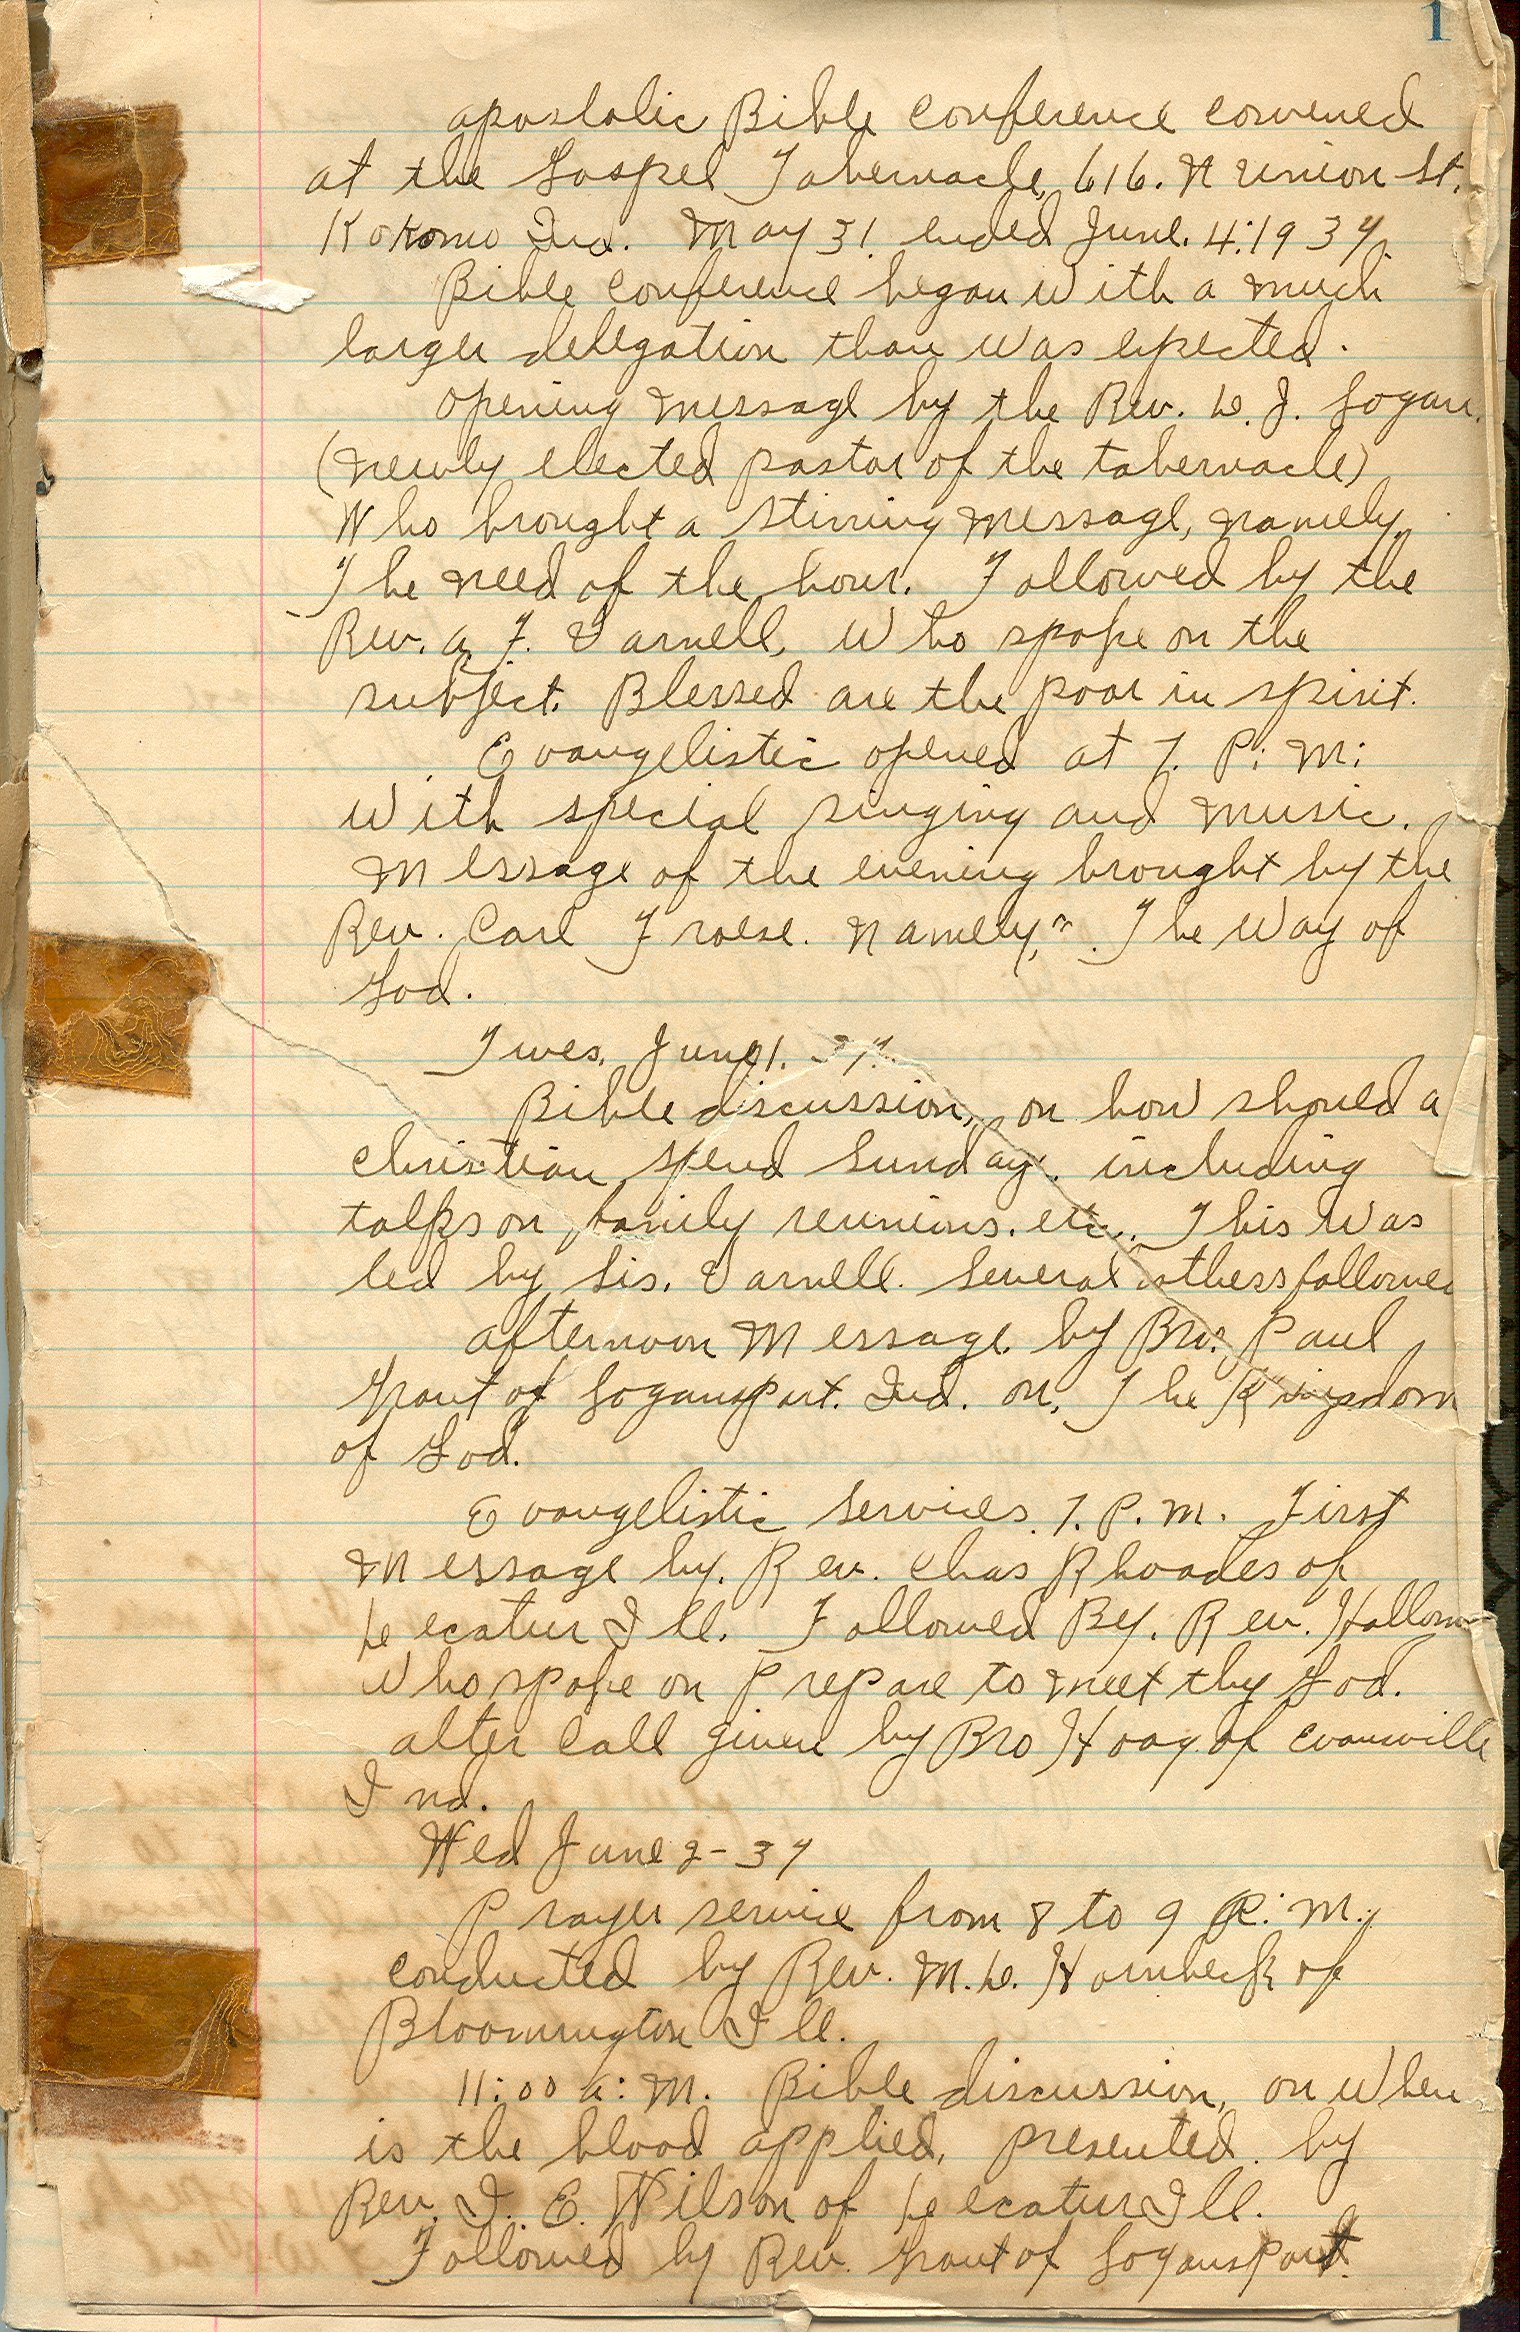 1
Apostolic Bible Conference convened
at the Gospel Tabernacle, 616. N Union St.
Kokomo Ind. May 31. ended June. 4. 1937.
Bible Conference began With a much
larger delegation than was expected.
Opening Message by the Rev. D. J. Logan.
(newly elected pastor of the tabernacle)
Who brought a stirring Message, namely
The need of the hour. Followed by the
Rev. A. F. Varnell, Who spoke on the
subject. Blessed are the poor in spirit.
Evangelistic opened at 7. P. M.
With special singing and Music.
Message of the evening brought by the
Rev. Carl Froese. Namely, The Way of
God.
Tues. June 1. 37.
Bible discussion, on how should a
Christian spend Sunday. including
talks on family reunions. etc. This Was
led by Sis. Varnell. Several others followed
Afternoon Message by Bro. Paul
Grant of Logansport. Ind. on, The Kingdom
of God.
Evangelistic Services. 7. P. M. First
Message by. Rev. Chas Rhoades of
Decatur Ill. Followed By. Rev. Hallow
Who spoke on Prepare to meet thy God.
Alter Call given by Bro Hoag of Evansville
Ind.
Wed June 2-37
Prayer service from 8 to 9 P. M.
conducted by Rev. M. D. Hornbeck of
Bloomington Ill.
11:00 A: M. Bible discussion, on When
is the blood applied, presented by
Rev. I. E. Wilson of Decatur Ill.
Followed by Rev. Grant of Logansport.